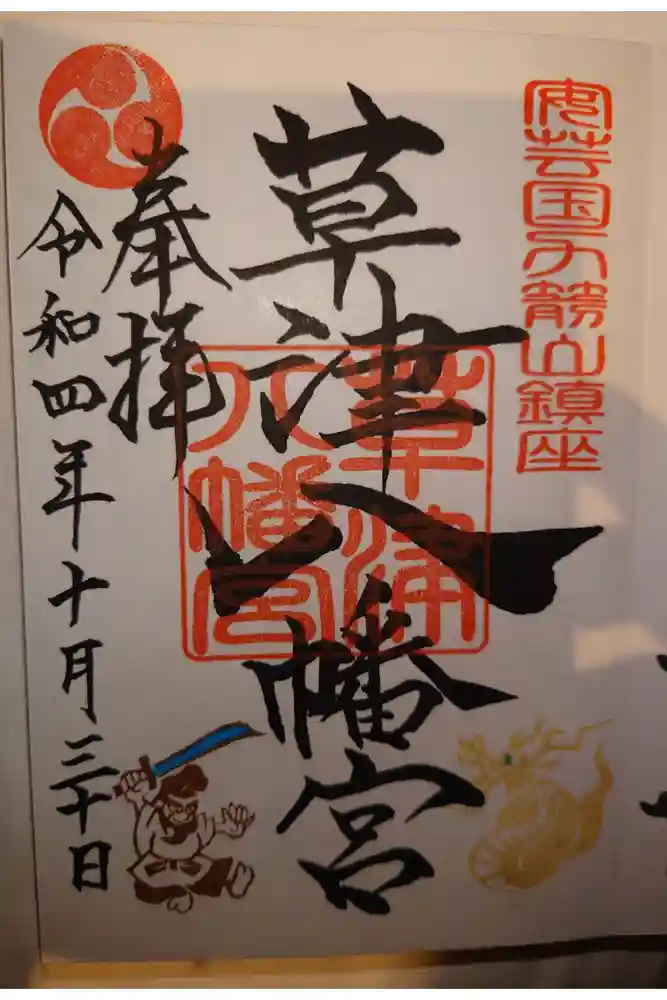 安芸国力箭山鎮座
草津八幡宮
草津
八幡宮
奉拝
令和四年十月三十日